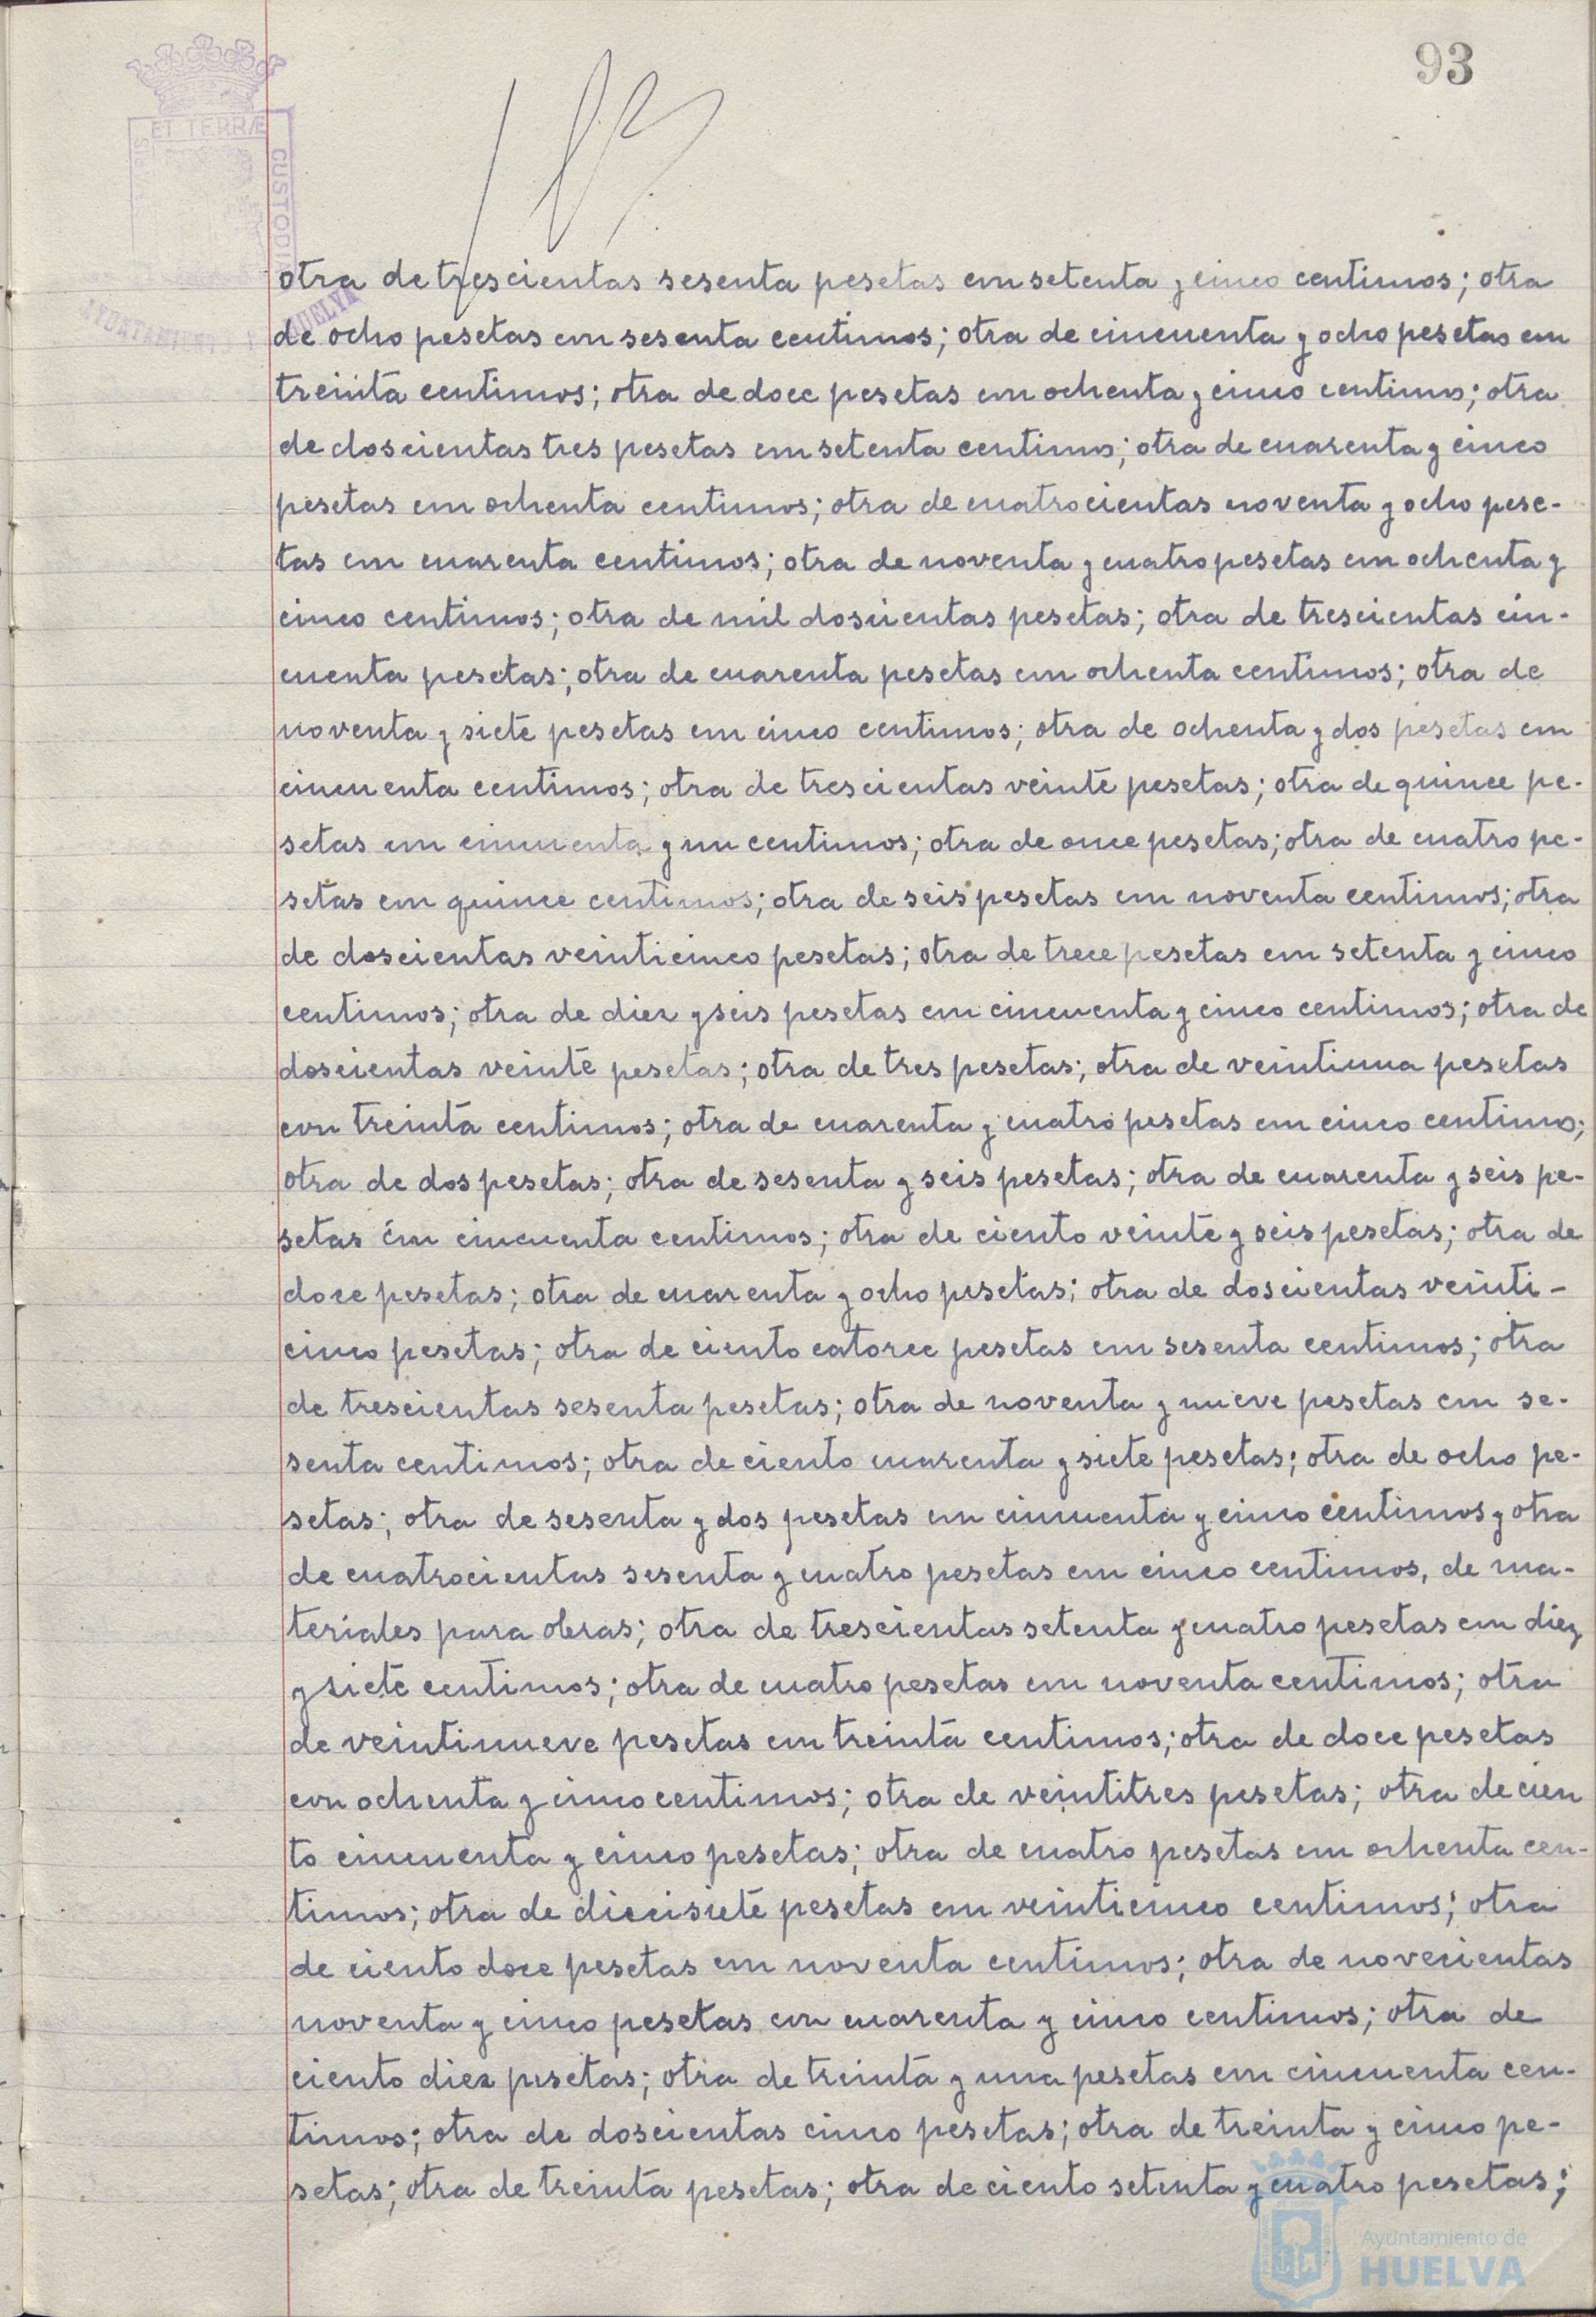 93
ET TERRÆ
CUSTODIA
AYUNTAMIENTO DE HUELVA
otra de trescientas sesenta pesetas con setenta y cinco centimos; otra
de ocho pesetas con sesenta centimos; otra de cincuenta y ocho pesetas con
treinta centimos; otra de doce pesetas con ochenta y cinco centimos; otra
de doscientas tres pesetas con setenta centimos; otra de cuarenta y cinco
pesetas con ochenta centimos; otra de cuatrocientas noventa y ocho pese-
tas con cuarenta centimos; otra de noventa y cuatro pesetas con ochenta y
cinco centimos; otra de mil doscientas pesetas; otra de trescientas cin-
cuenta pesetas; otra de cuarenta pesetas con ochenta centimos; otra de
noventa y siete pesetas con cinco centimos; otra de ochenta y dos pesetas con
cincuenta centimos; otra de trescientas veinte pesetas; otra de quince pe-
setas con cincuenta y un centimos; otra de once pesetas; otra de cuatro pe-
setas con quince centimos; otra de seis pesetas con noventa centimos; otra
de doscientas veinticinco pesetas; otra de trece pesetas con setenta y cinco
centimos; otra de diez y seis pesetas con cincuenta y cinco centimos; otra de
doscientas veinte pesetas; otra de tres pesetas; otra de veintiuna pesetas
con treinta centimos; otra de cuarenta y cuatro pesetas con cinco centimos;
otra de dos pesetas; otra de sesenta y seis pesetas; otra de cuarenta y seis pe-
setas con cincuenta centimos; otra de ciento veinte y seis pesetas; otra de
doce pesetas; otra de cuarenta y ocho pesetas; otra de doscientas veinti-
cinco pesetas; otra de ciento catorce pesetas con sesenta centimos; otra
de trescientas sesenta pesetas; otra de noventa y nueve pesetas con se-
senta centimos; otra de ciento cuarenta y siete pesetas; otra de ocho pe-
setas; otra de sesenta y dos pesetas con cincuenta y cinco centimos y otra
de cuatrocientas sesenta y cuatro pesetas con cinco centimos, de ma-
teriales para obras; otra de trescientas setenta y cuatro pesetas con diez
y siete centimos; otra de cuatro pesetas con noventa centimos; otra
de veintinueve pesetas con treinta centimos; otra de doce pesetas
con ochenta y cinco centimos; otra de veintitres pesetas; otra de cien
to cincuenta y cinco pesetas; otra de cuatro pesetas con ochenta cen-
timos; otra de diecisiete pesetas con veinticinco centimos; otra
de ciento doce pesetas con noventa centimos; otra de novecientas
noventa y cinco pesetas con cuarenta y cinco centimos; otra de
ciento diez pesetas; otra de treinta y una pesetas con cincuenta cen-
timos; otra de doscientas cinco pesetas; otra de treinta y cinco pe-
setas; otra de treinta pesetas; otra de ciento setenta y cuatro pesetas;
Ayuntamiento de
HUELVA